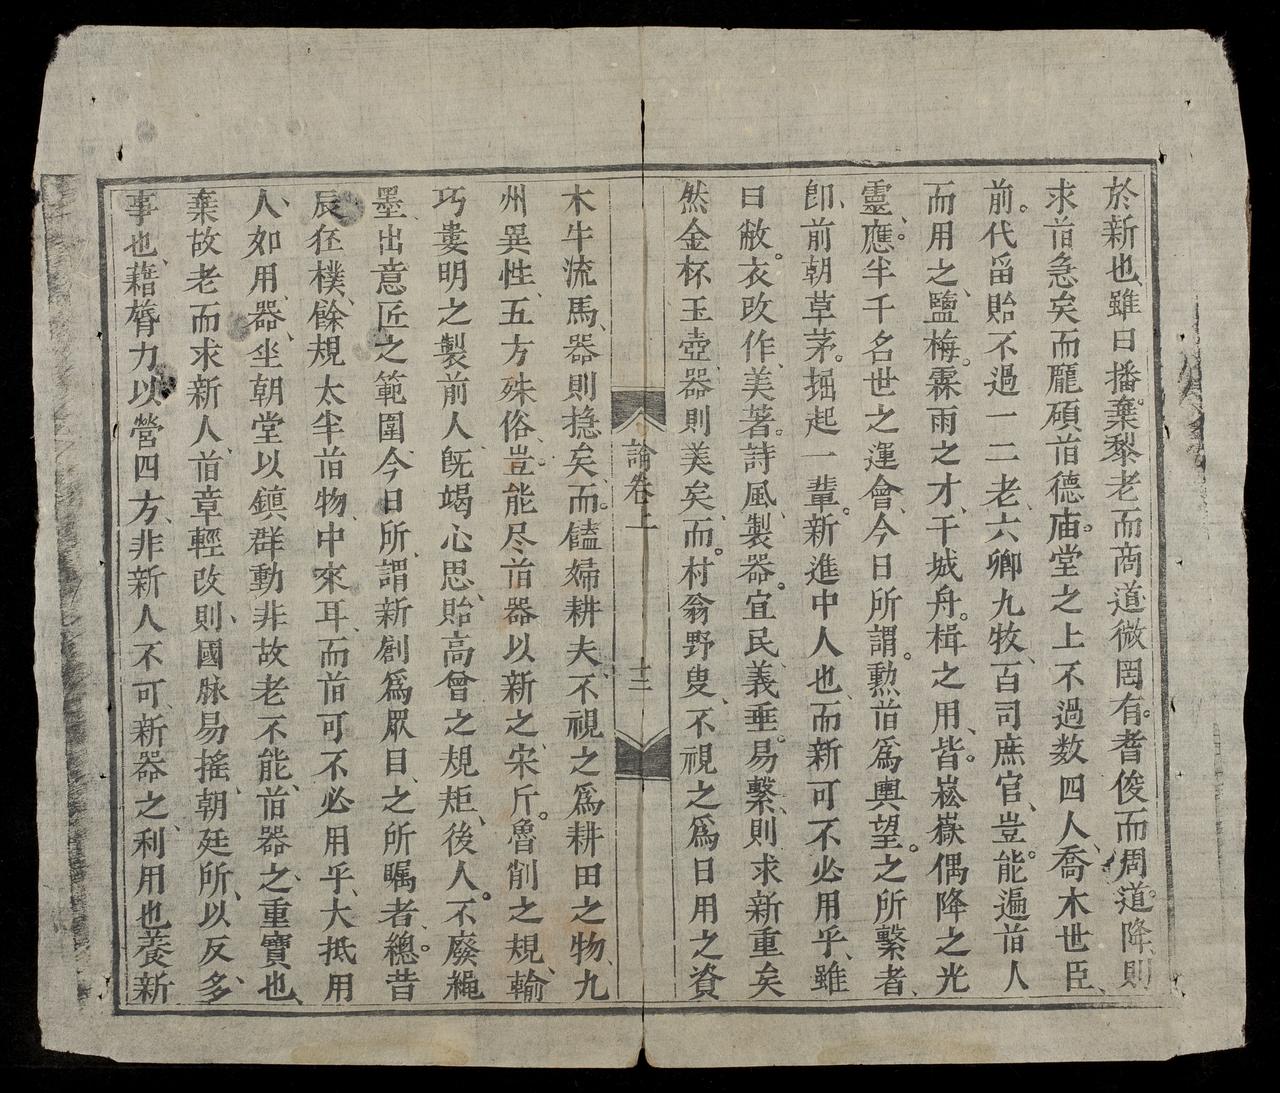 於新也雖曰播棄黎老而商道微罔有耆俊而周道降則
求旧急矣而龎碩旧德庙堂之上不過数四人喬木世臣
前代畱貽不過一二老六卿九牧百司庶官豈能遍旧人
而用之鹽梅霖雨之才干城舟楫之用皆崧嶽偶降之光
靈應半千名世之運會今日所謂勲旧爲輿望之所繫者
卽前朝草茅掘起一輩新進中人也而新可不必用乎雖
曰敝衣改作美著詩風製器宜民義垂易繫則求新重矣
然金杯玉壺器則美矣而村翁野叟不視之爲日用之資
論卷上
十二
木牛流馬器則穏矣而饁婦耕夫不視之爲耕田之物九
州異性五方殊俗豈能尽旧器以新之宋斤魯削之規輸
巧婁明之製前人旣竭心思貽高曾之規矩後人不廢繩
墨出意匠之範圍今日所謂新創爲眾目之所瞩者緫昔
辰在樸餘規太半旧物中來耳而旧可不必用乎大抵用
人如用器坐朝堂以鎮群動非故老不能旧器之重寶也
棄故老而求新人旧章輕改則國脉易搖朝廷所以反多
事也藉膂力以營四方非新人不可新器之利用也養新